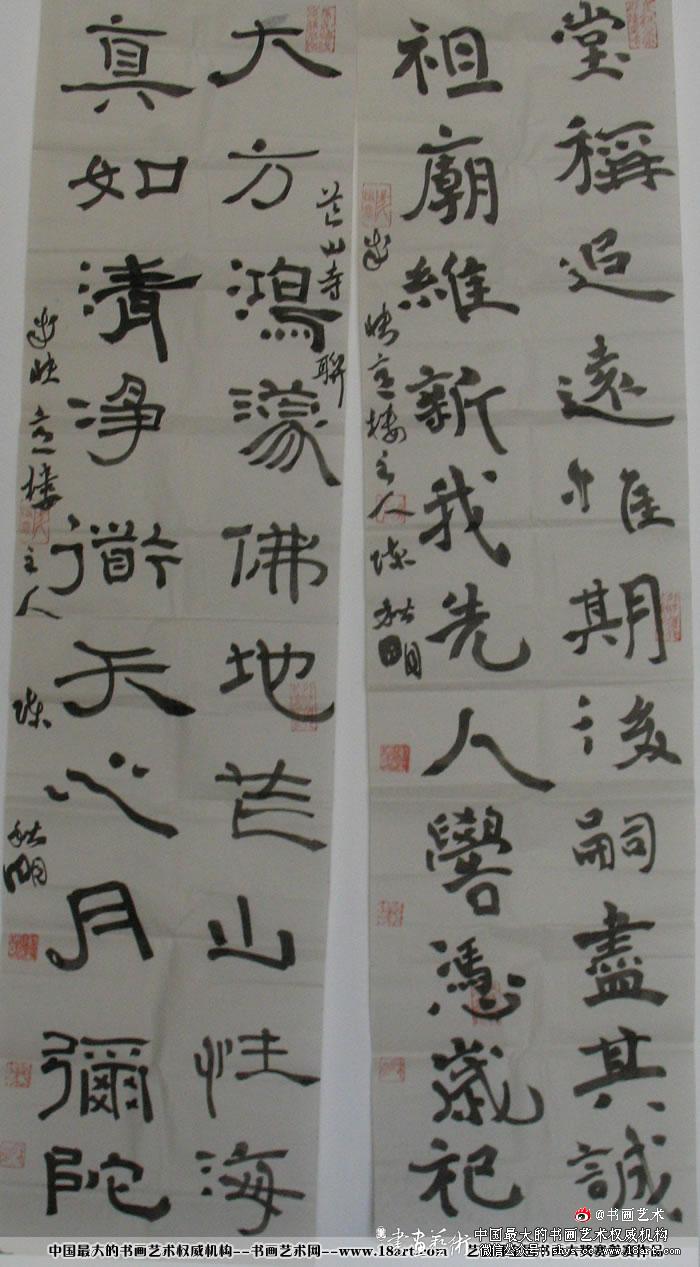 堂稱追遠惟期後嗣盡其誠
祖廟維新我先人譽憑歲祀
樓主人 秋明
大方鴻濛佛地芒山性海
芒山寺聯
真如清淨衜天心月彌陀
樓主人 秋明
@书画艺术
书画艺術
中国最大的书画艺术权威机构
中国最大的书画艺术权威机构--书画艺术网--www.18art.com